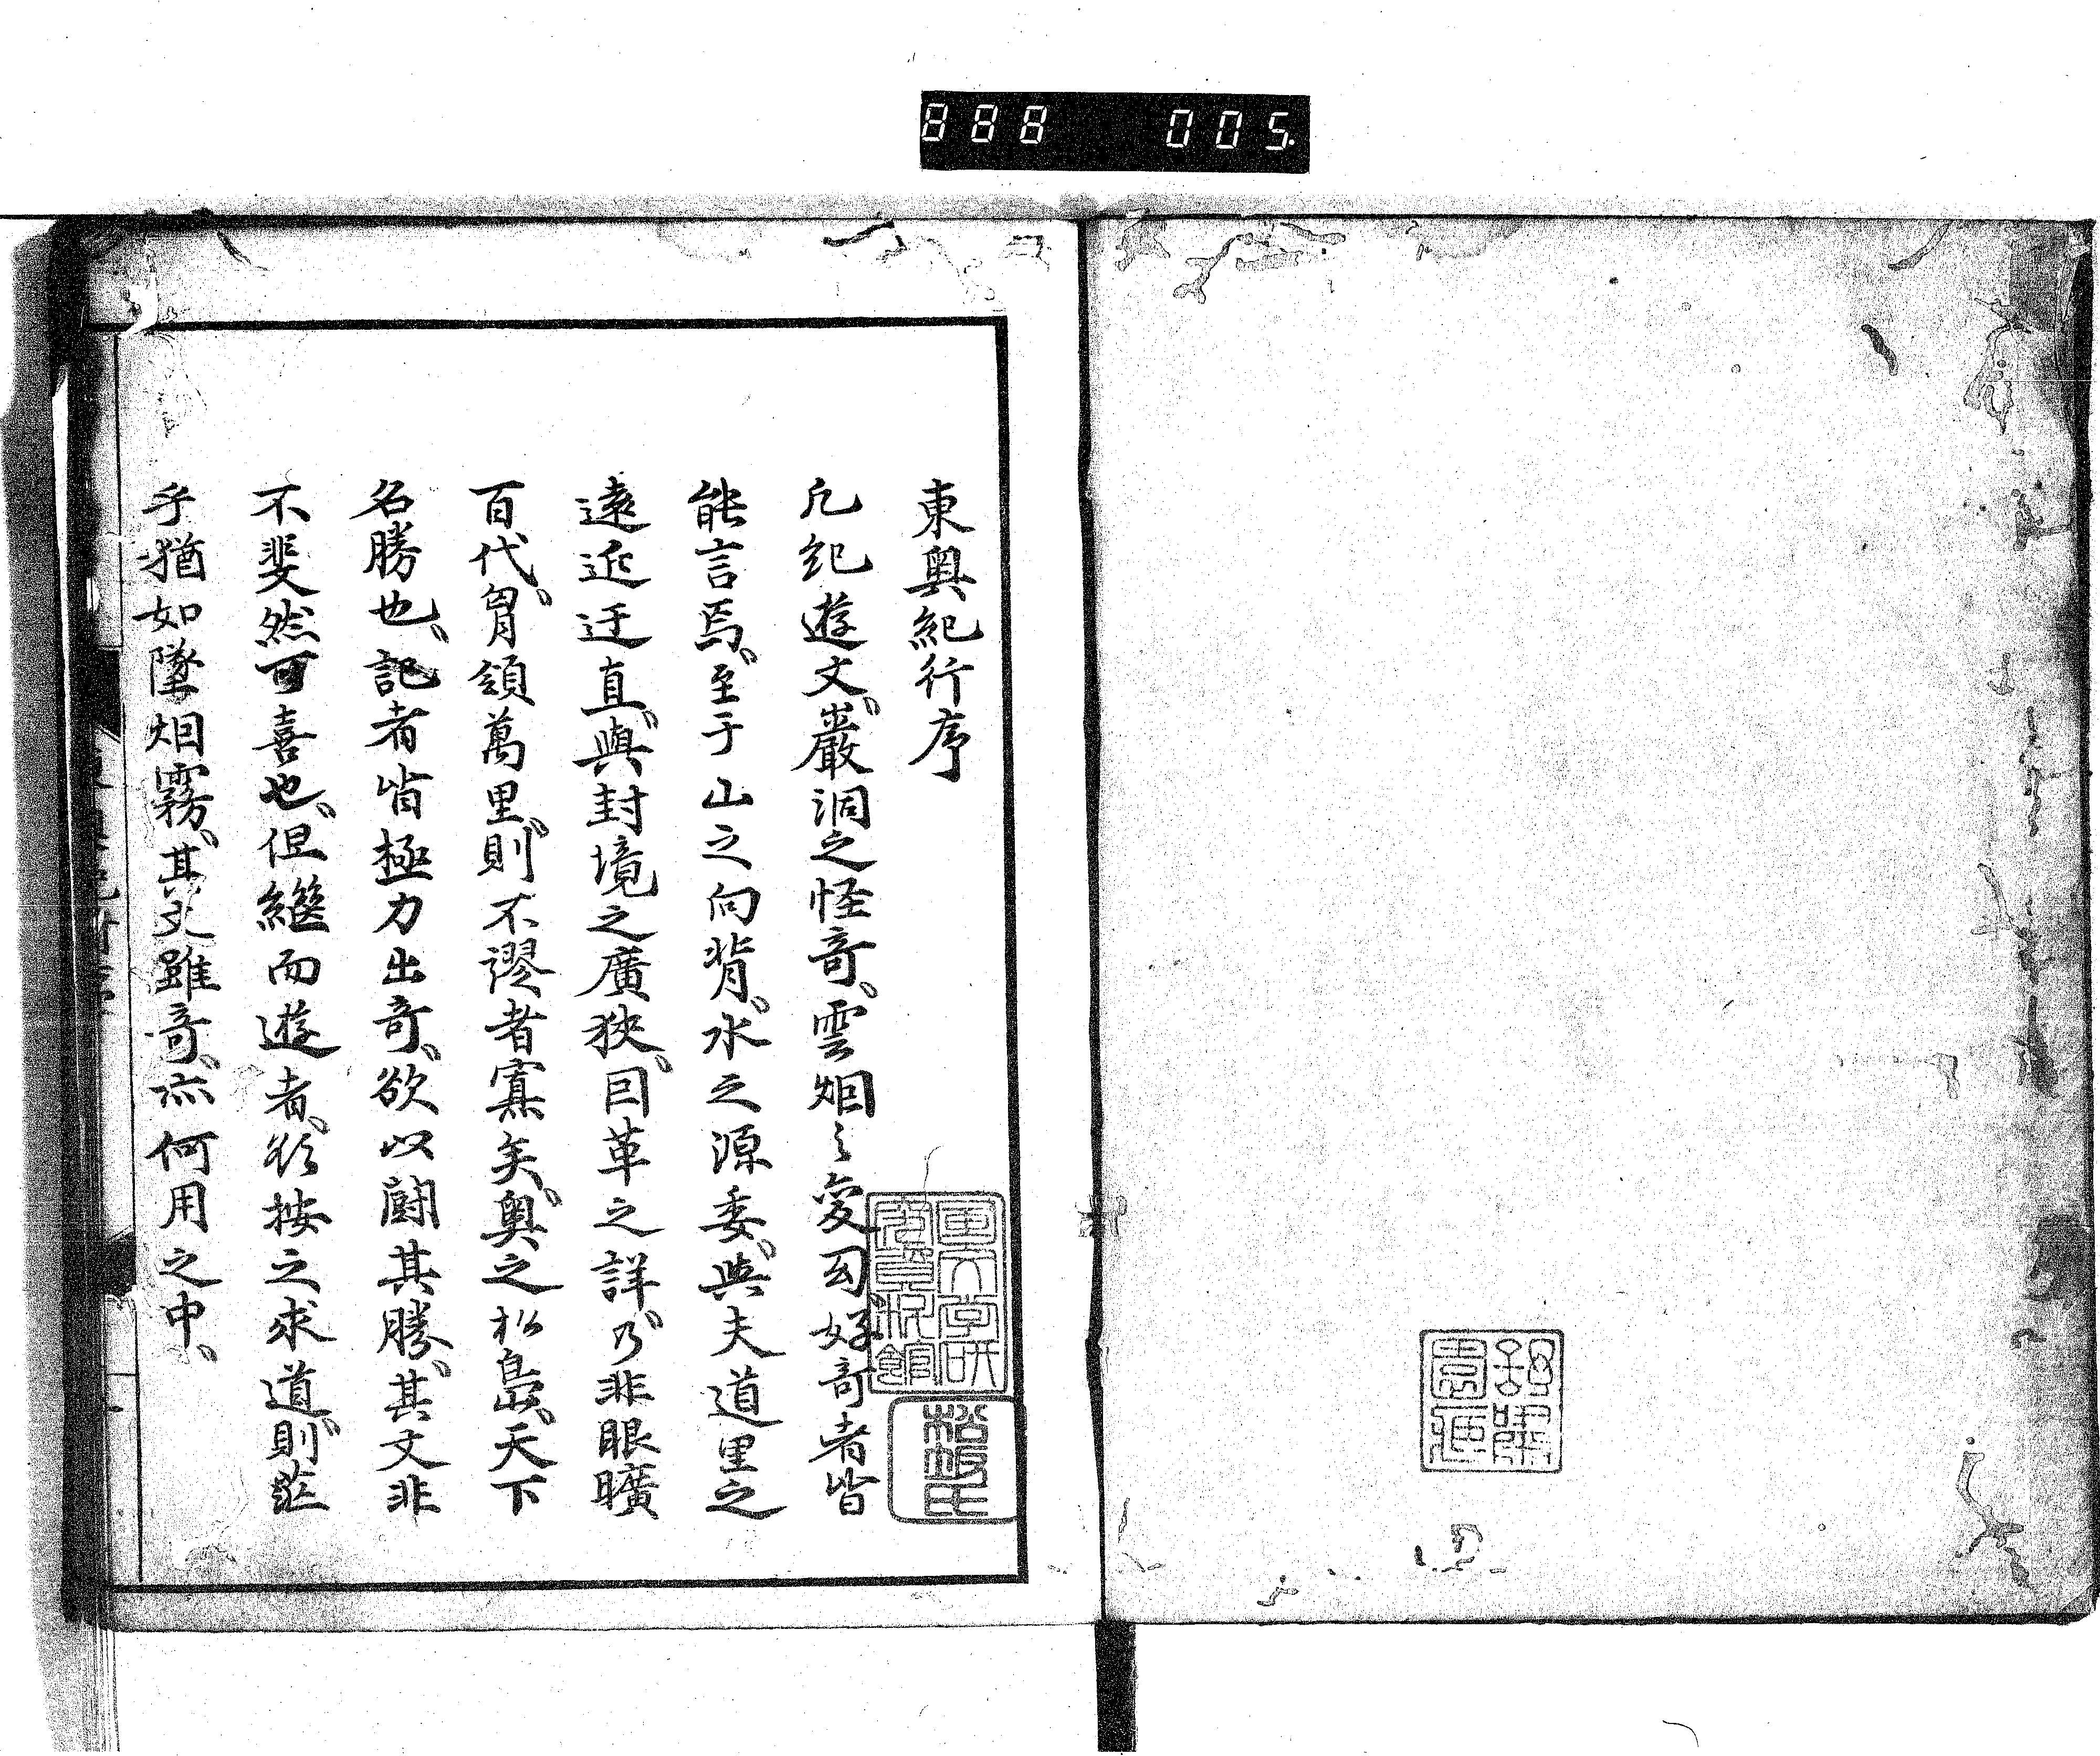 888 005
東奥紀行序
凡紀遊文、巖洞之怪奇、雲烟之変幻、好奇者皆
能言焉、至于山之向背、水之源委、與夫道里之
遠近迂直、與封境之廣狹、因革之詳、乃非眼曠
百代、胷領萬里、則不謬者寡矣、奥之松島、天下
名勝也、記者皆極力出奇、欲以鬭其勝、其文非
不斐然可喜也、但繼而遊者、欲按之求道、則茫
乎猶如墜烟霧、其文雖奇、亦何用之中、
松坂氏